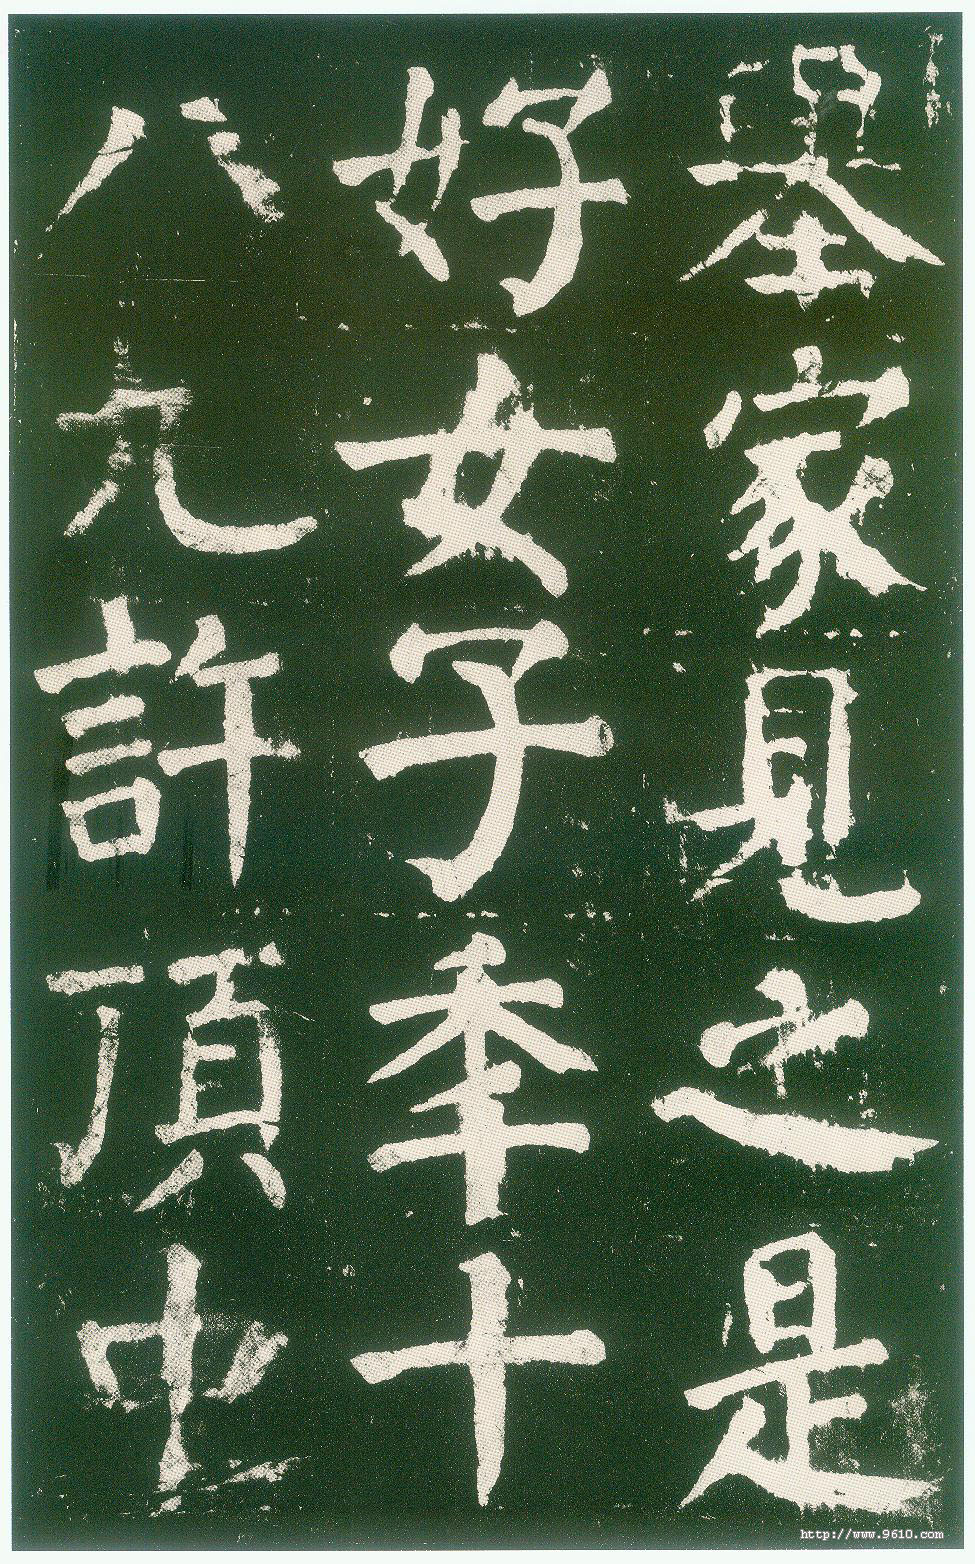 舉家見之是
好女子秊十
八九許頂中
http://www.9610.com